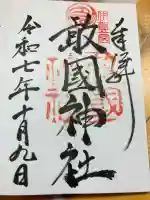 奉拝
最圀神社
令和七年十月九日